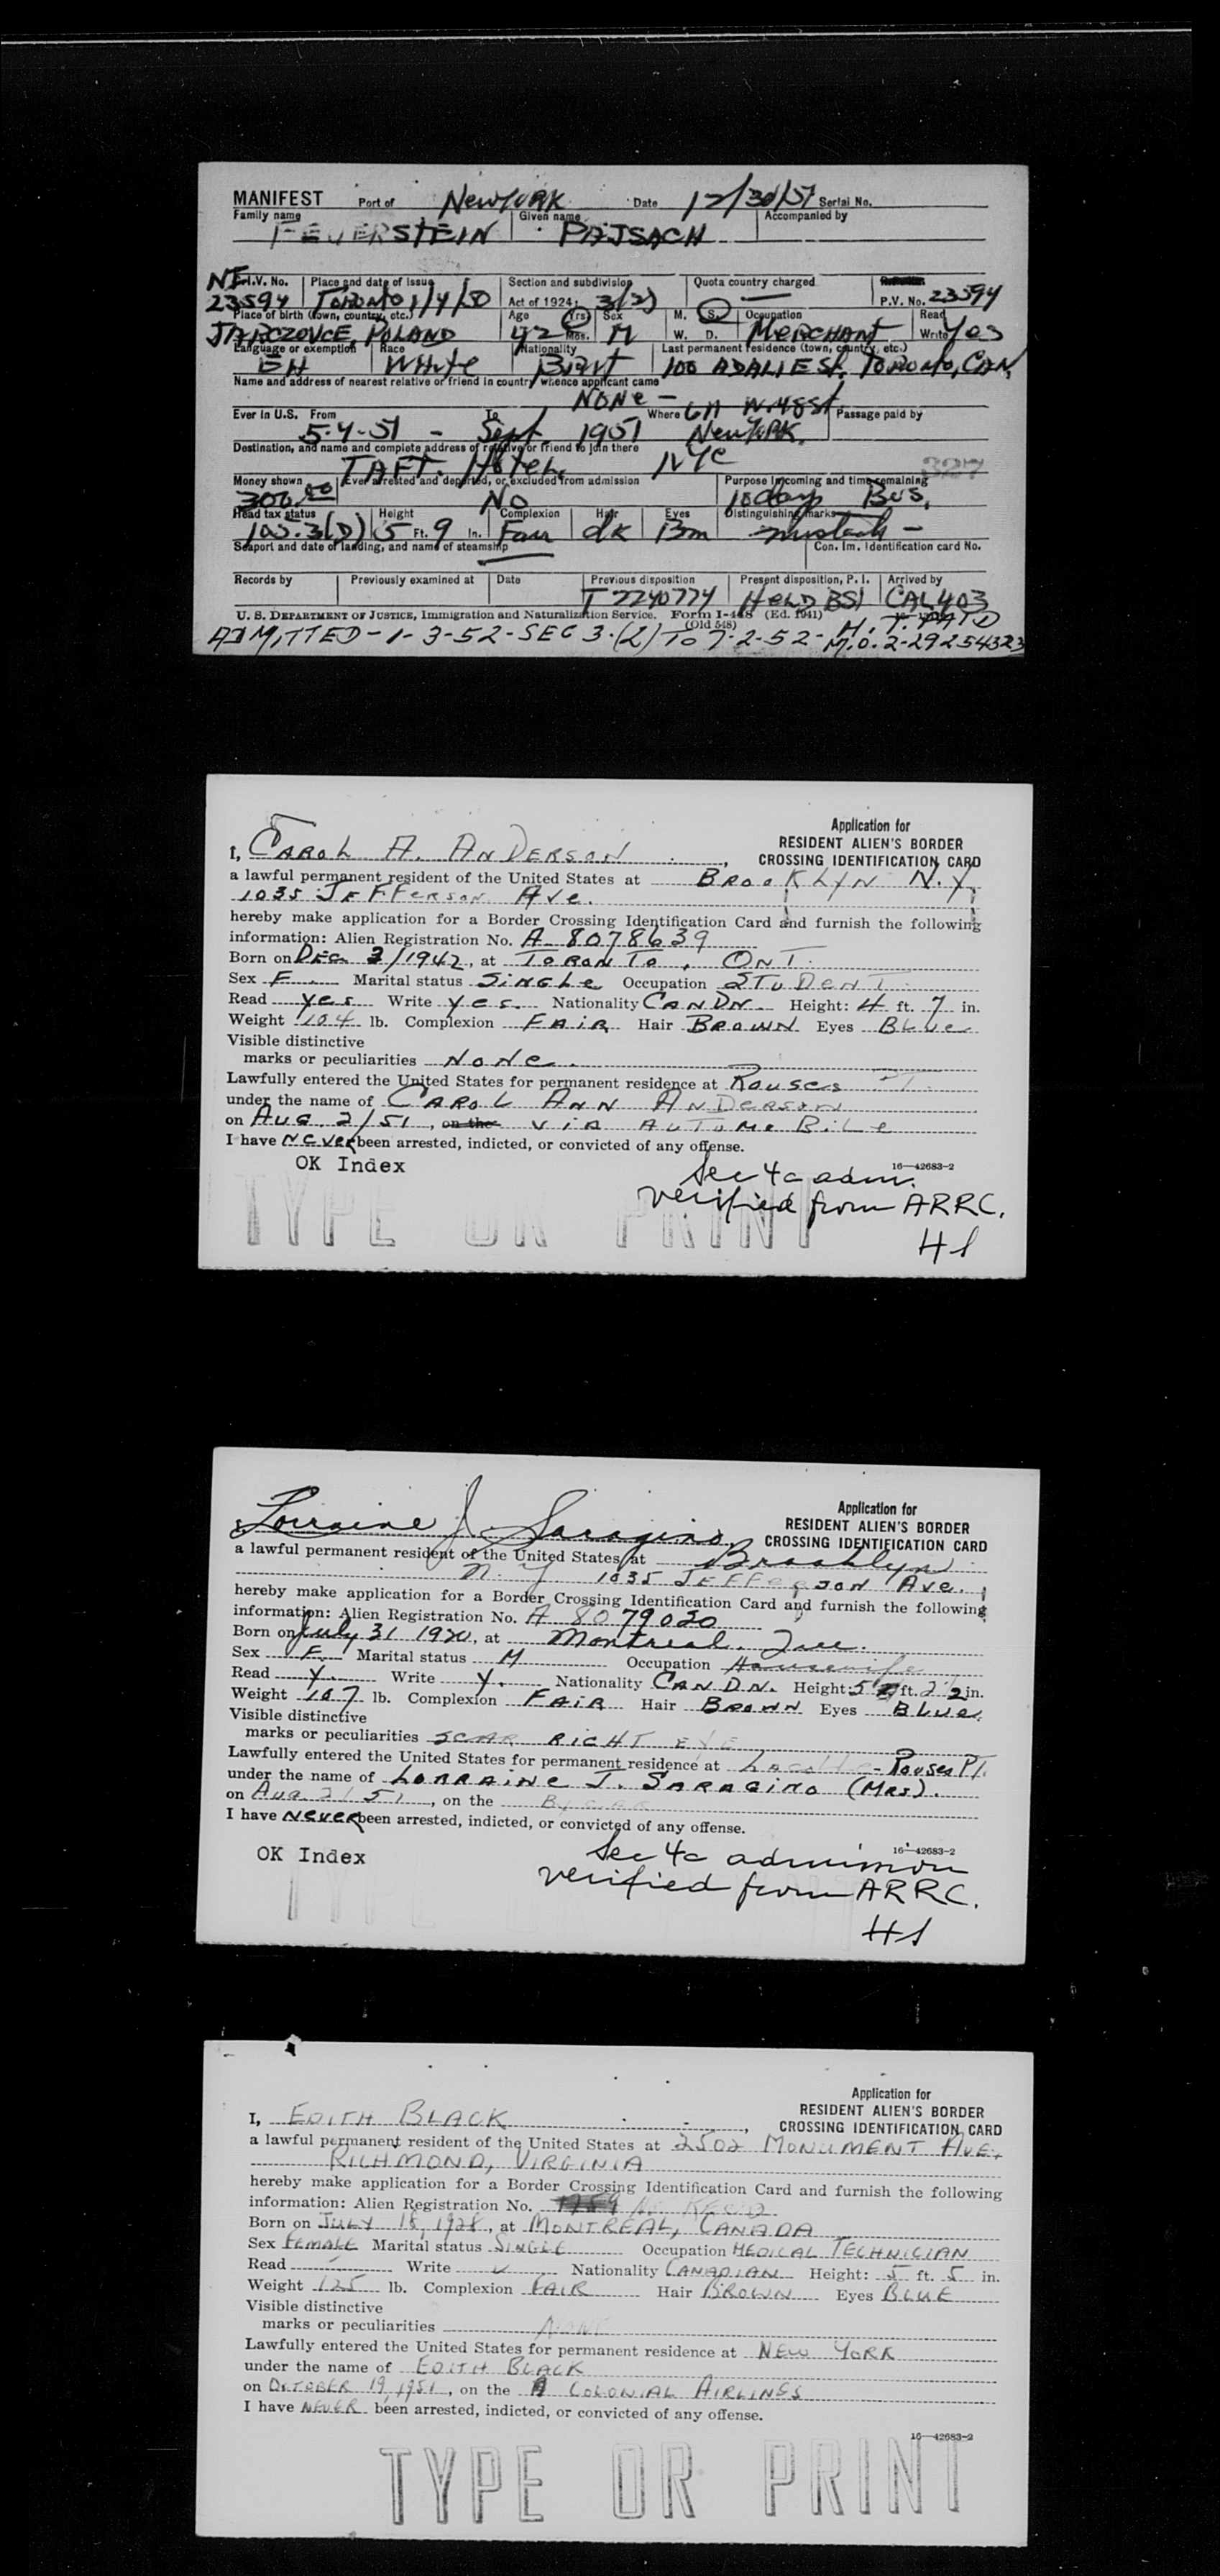 MANIFEST Port of New YORK Date 12/30/51 Serial No.
Family name Given name Accompanied by
FEUERSTEIN PAJSACH
NI I.V. No. Place and date of issue Section and subdivision Quota country charged
23594 TORONTO 1/4/50 Act of 1924: 3(2) — P.V. No. 23594
Place of birth (town, country, etc.) Age Yrs. Sex M. S. Occupation Read
JARCZOVCE, POLAND 42 Mos. M W. D. MERCHANT Write Yes
Language or exemption Race Nationality Last permanent residence (town, country, etc.)
EH White 100 ADALIE St. TORONTO, CAN.
Name and address of nearest relative or friend in country whence applicant came
NONE —
Ever in U.S. From To Where Passage paid by
5-4-51 - Sept. 1951 New YORK
Destination, and name and complete address of relative or friend to join there
TAFT. Hotel. NYC 327
Money shown Ever arrested and deported, or excluded from admission Purpose in coming and time remaining
300.00 No 10 days Bus.
Head tax status Height Complexion Hair Eyes Distinguishing marks
105.3(D) 5 Ft. 9 In. Fair dk Brn
Seaport and date of landing, and name of steamship Con. Im. Identification card No.
Records by Previously examined at Date Previous disposition Present disposition, P. I. Arrived by
T 2240774 HELD BSI CAL 403
U. S. DEPARTMENT OF JUSTICE, Immigration and Naturalization Service. Form I-448 (Ed. 1941)
(Old 548)
ADMITTED-1-3-52-SEC 3.(2) TO 7-2-52- M.O.2-29254323
Application for
RESIDENT ALIEN'S BORDER
I, CAROL A. ANDERSON, CROSSING IDENTIFICATION CARD
a lawful permanent resident of the United States at BROOKLYN N.Y.
1035 JEFFERSON Ave.
hereby make application for a Border Crossing Identification Card and furnish the following
information: Alien Registration No. A-8078639
Born on DEC 3/1942, at TORONTO, ONT.
Sex F. Marital status SINGLE Occupation STUDENT
Read yes Write yes. Nationality CANDN. Height: 4 ft. 7 in.
Weight 104 lb. Complexion FAIR Hair BROWN Eyes BLUE
Visible distinctive
marks or peculiarities NONE.
Lawfully entered the United States for permanent residence at Rouses PT.
under the name of CAROL ANN ANDERSON
on AUG. 2/51, on the VIA AUTOMOBILE
I have NEVER been arrested, indicted, or convicted of any offense.
OK Index 16—42683-2
Sec 4c adm.
verified from ARRC.
TYPE OR PRINT
HS
Application for
RESIDENT ALIEN'S BORDER
Lorraine J. Saragino, CROSSING IDENTIFICATION CARD
a lawful permanent resident of the United States at Brooklyn
N.Y 1035 JEFFERSON Ave.
hereby make application for a Border Crossing Identification Card and furnish the following
information: Alien Registration No. A 8079020
Born on July 31 1920, at Montreal. Que.
Sex F. Marital status M Occupation Housewife
Read Y. Write Y. Nationality CANDN. Height: 5 ft. 2 in.
Weight 107 lb. Complexion FAIR Hair BROWN Eyes BLUE.
Visible distinctive
marks or peculiarities SCAR RIGHT EYE
Lawfully entered the United States for permanent residence at Lacolle - Rouses PT.
under the name of LORRAINE J. SARAGINO (MRS).
on Aug 2/51, on the By CAR
I have NEVER been arrested, indicted, or convicted of any offense.
OK Index 16—42683-2
Sec 4c admission
verified from ARRC.
HS
Application for
RESIDENT ALIEN'S BORDER
I, EDITH BLACK, CROSSING IDENTIFICATION CARD
a lawful permanent resident of the United States at 2502 MONUMENT AVE,
RICHMOND, VIRGINIA
hereby make application for a Border Crossing Identification Card and furnish the following
information: Alien Registration No.
Born on JULY 18, 1928, at MONTREAL, CANADA
Sex FEMALE Marital status SINGLE Occupation MEDICAL TECHNICIAN
Read ✓ Write ✓ Nationality CANADIAN Height: 5 ft. 5 in.
Weight 125 lb. Complexion FAIR Hair BROWN Eyes BLUE
Visible distinctive
marks or peculiarities NONE
Lawfully entered the United States for permanent residence at NEW YORK
under the name of EDITH BLACK
on OCTOBER 19, 1951, on the COLONIAL AIRLINES
I have NEVER been arrested, indicted, or convicted of any offense.
16—42683-2
TYPE OR PRINT